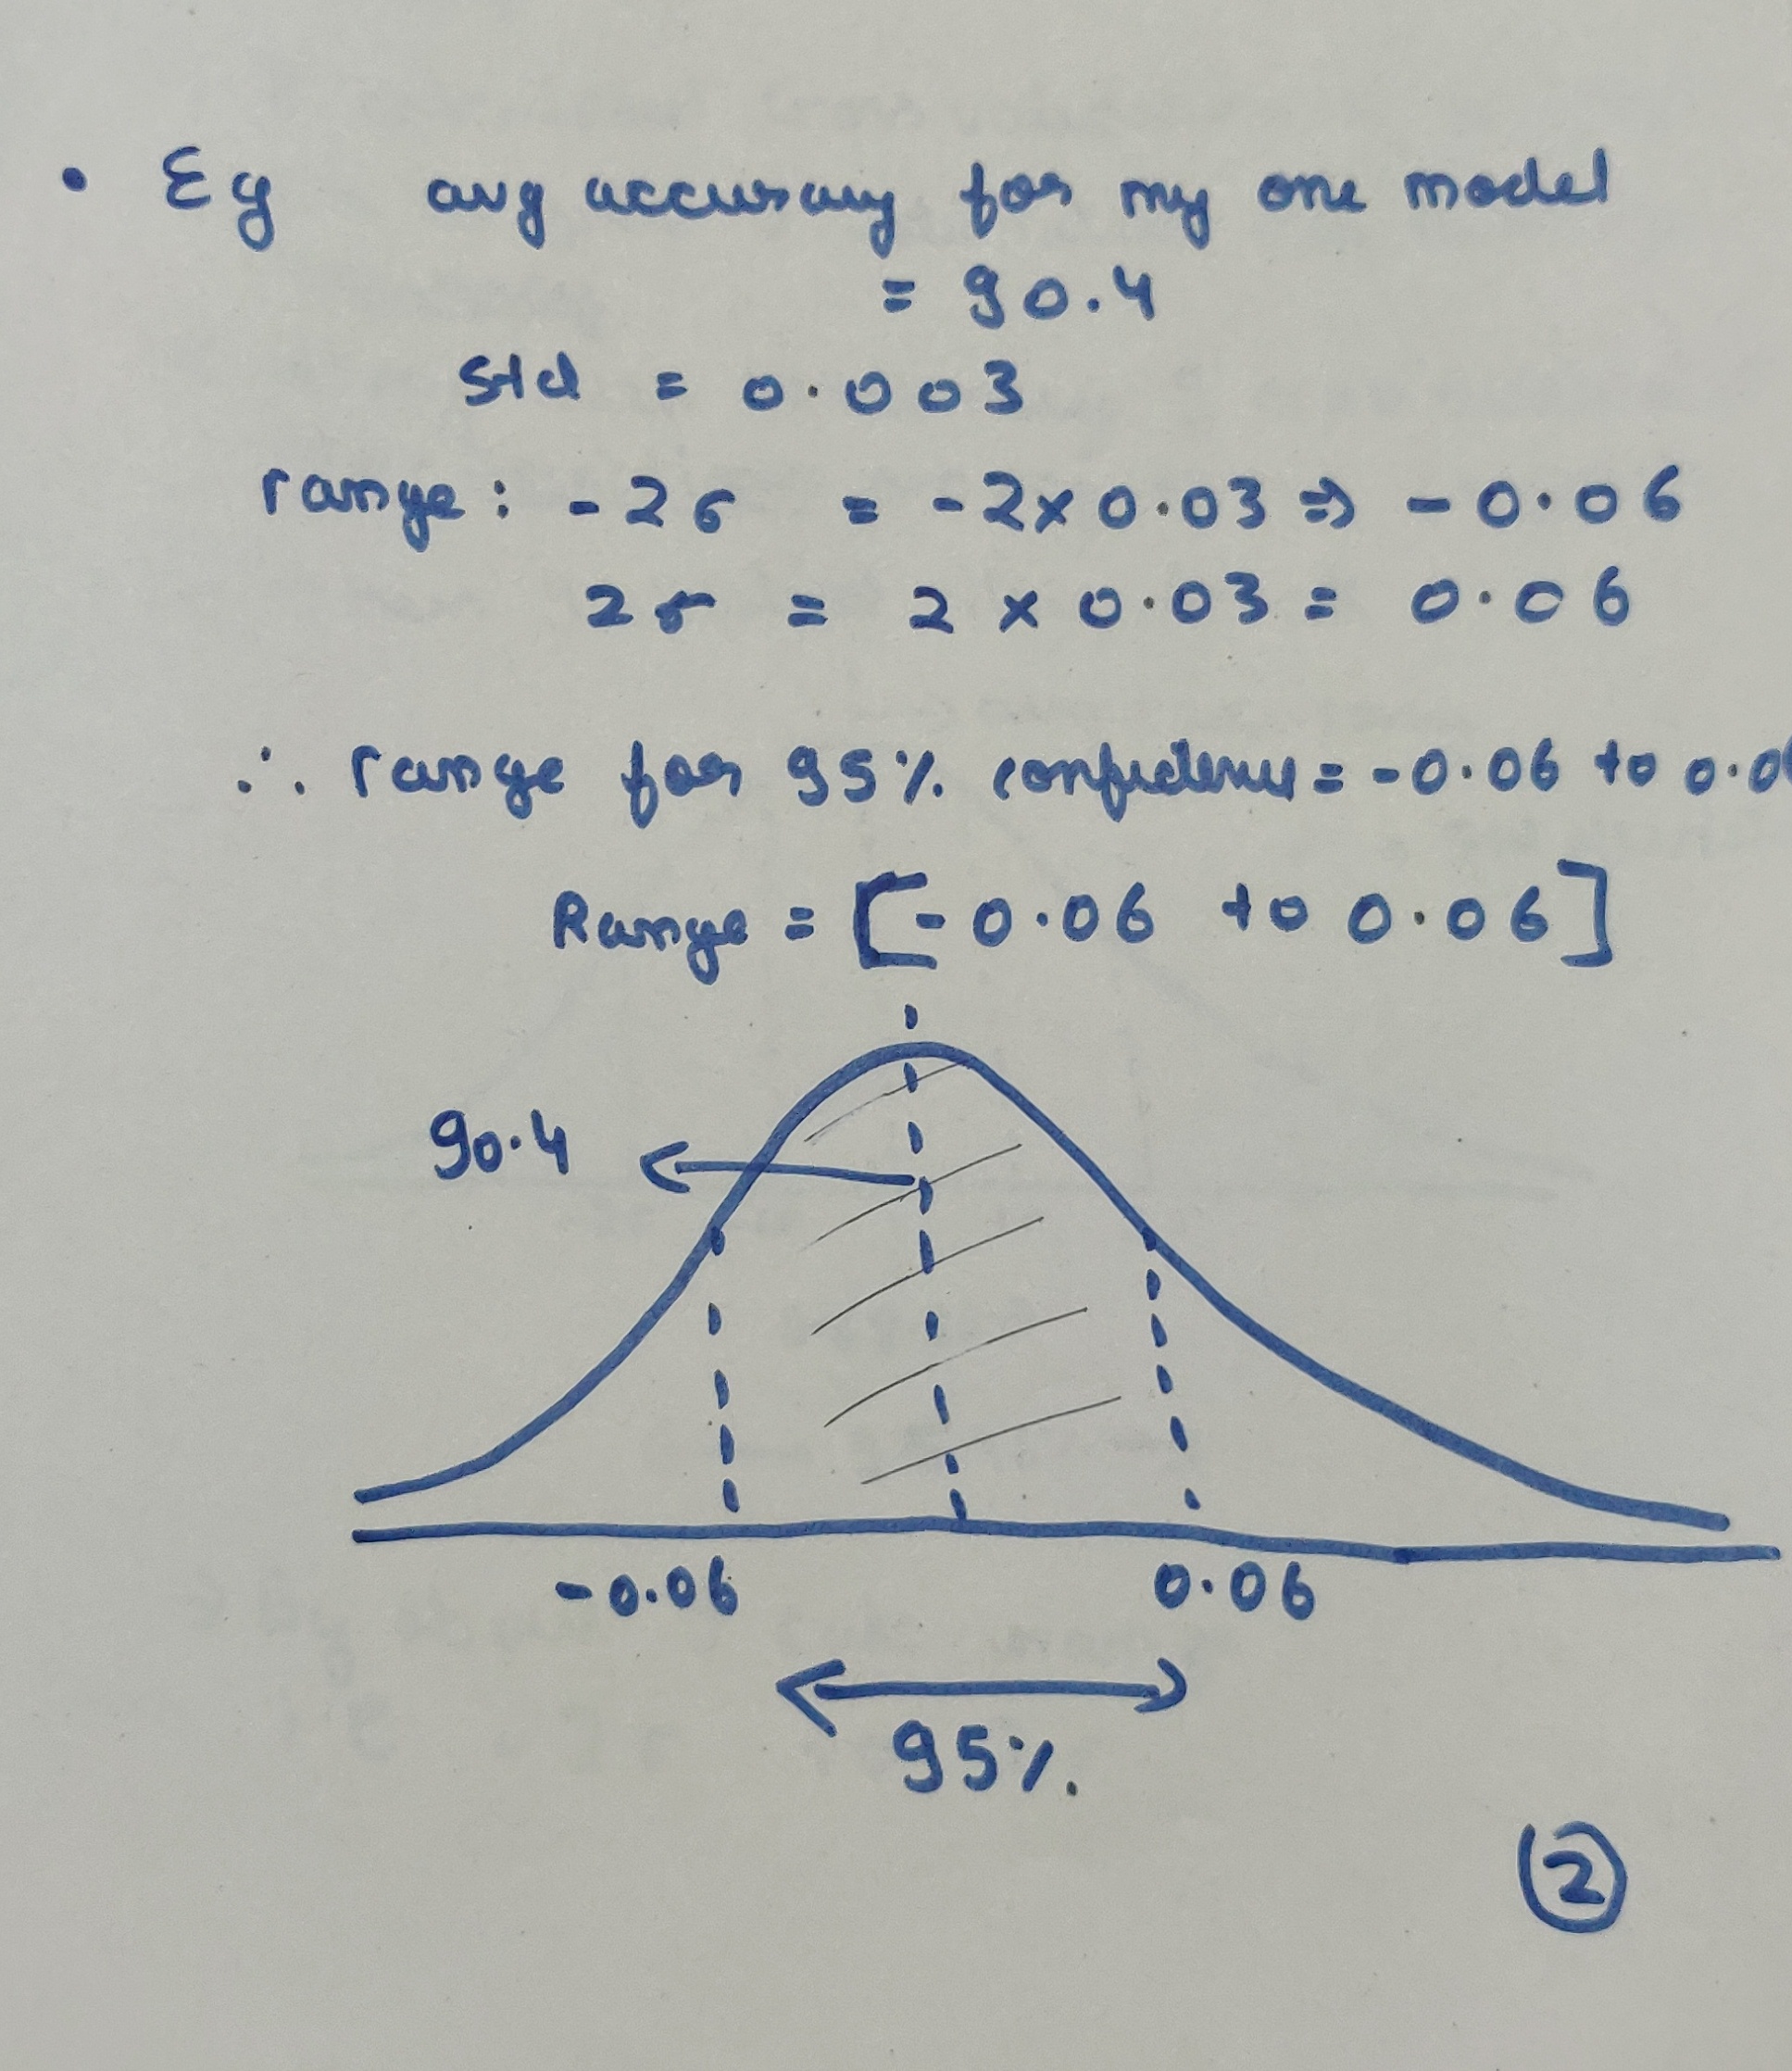 • Eg avg accuracy for my one model
= 90.4
Std = 0.003
range: -2σ = -2x 0.03 ⇒ -0.06
2σ = 2 x 0.03 = 0.06
∴ range for 95% confidence = -0.06 to 0.0
Range = [-0.06 to 0.06]
90.4
-0.06 0.06
95%.
2